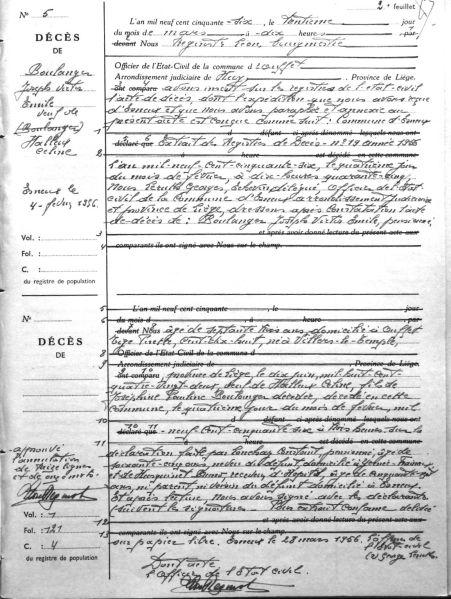 2e feuillet
N° 5
DÉCÈS
DE
Boulanger
Joseph Victor
Emile
veuf de
(Boulanger)
Halleux
Celine
Esneux le
4 - 1956.
Vol. :
Fol. :
C. :
du registre de population
L'an mil neuf cent cinquante - six, le trentième jour
du mois de mars à - dix heures
devant Nous
Officier de l'Etat-Civil de la commune d'Ouffet
Arrondissement judiciaire de Huy, Province de Liége.
ont comparu avons inscrit sur les registres de l'état-civil
l'acte de décès, dont l'expédition que nous avons reçue
d'Esneux et que nous avons paraphée et annexée au
présent acte est conçue comme suit : Commune d'Esneux
1 défunt ci-après dénommé lesquels nous ont
déclaré que Extrait des Registres de Décès - n° 19 année 1956
2 à heure est décédé en cette commune
L'an mil-neuf-cent-cinquante-six, le quatrième jour
du mois de février, à dix-heures quarante-cinq,
Nous Georges, échevin délégué, officier de l'Etat
civil de la Commune d'Esneux arrondissement judiciaire
et province de Liège, dressons après constatation l'acte
de décès de : Boulanger Joseph Victor Emile, pensionné,
3 et après avoir donné lecture du présent acte aux
4 comparants ils ont signé avec Nous sur le champ.
N°
DÉCÈS
DE
approuvé
l'annulation
de treize lignes
et de onze mots
Vol. : 1
Fol. : 121
C. : 4
du registre de population
5 L'an mil neuf cent cinquante , le jour
6 du mois d , à heure
7 devant Nous âgé de septante trois ans, domicilié à Ouffet
cent-dix-huit, né à Villers-le-Temple,
8 Officier de l'Etat Civil de la commune d
9 Arrondissement judiciaire de , Province de Liége.
ont comparu province de Liège, le dix juin, mil huit-cent-
quatre-vingt-deux, veuf de Halleux Celine, fils de
Joséphine Pauline Boulanger décédée, décédé en cette
Commune, le quatrième jour du mois de février, mil
10 d défunt ci-après dénommé lesquels nous ont
déclaré que - neuf-cent-cinquante-six à trois heures sur la
11 à heure est décédé en cette commune
déclaration faite par Constant, pensionné, âgé de
soixante-cinq ans, neveu du défunt domicilié à
et de
ans, ni parent ni voisin du défunt domicilié à Esneux.
Et après lecture, nous avons signé avec les déclarants
(suivent les signatures - Pour extrait conforme délivré
12 et après avoir donné lecture du présent acte aux
13 comparants ils ont signé avec Nous sur le champ.
sur papier libre. Esneux le 28 mars 1956. L'officier de
l'Etat-civil
(s) Georges
Dont acte
L'Officier de l'Etat civil.